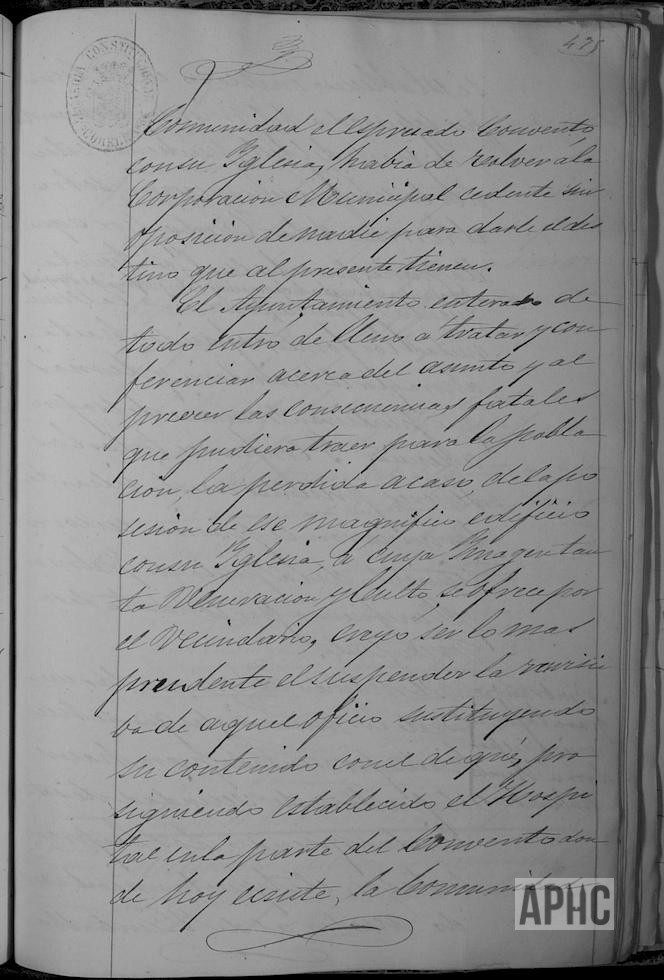 475
Comunidad el espresado Convento,
consu Yglesia, habia de volver a la
Corporacion Municipal cedente sin
oposicion de nadie para darle el des
tino que al presente tienen.
El Ayuntamiento enterado de
todo entró de lleno a tratar y con
ferenciar acerca del asunto y al
preveer las consecuencias fatales
que pudiera traer para la pobla
cion, la perdida acaso, de la po
sesion de ese magnifico edificio
consu Yglesia, á cuya Imagen tan
ta Veneracion y Culto, se ofrece por
el Vecindario, creyó ser lo mas
prudente el suspender la remisi
va de aquel oficio sustituyendo
su contenido con el de qué, pro
siguiendo establecido el Hospi
tal en la parte del Convento don
de hoy ecsiste, la Comunidad
APHC